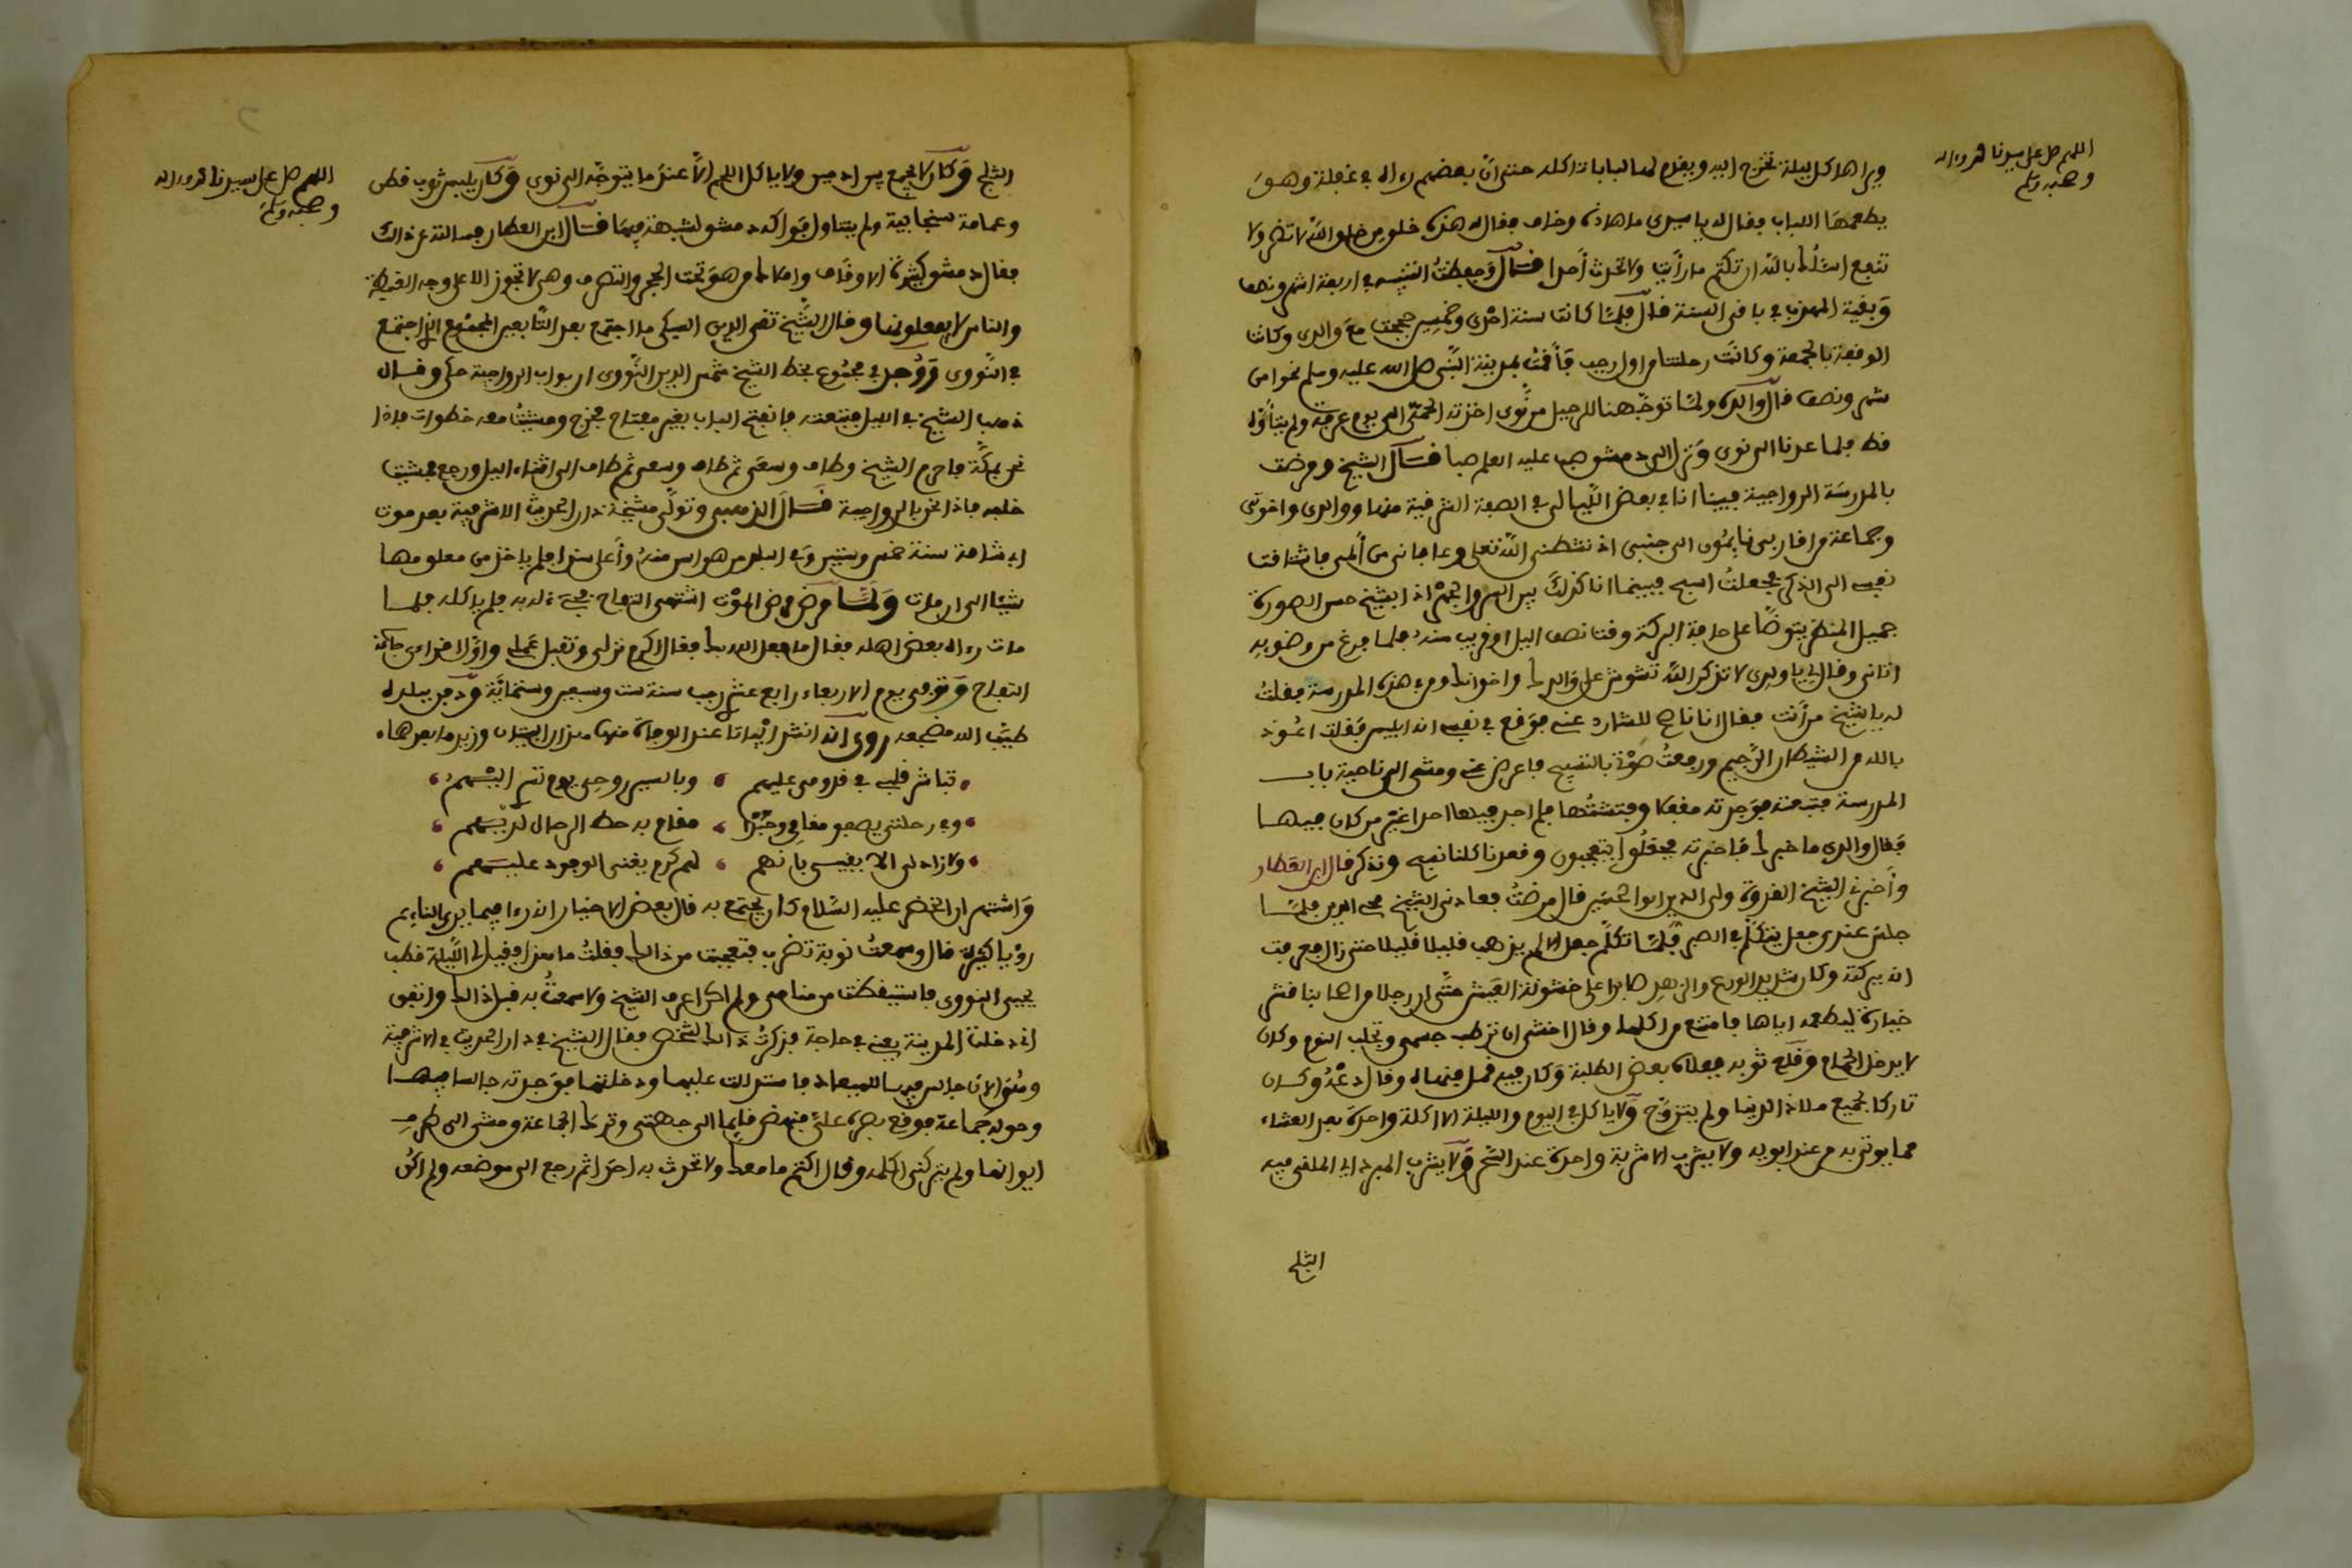 اللهم صل على سيدنا محمد واله
وصحبه وسلم
ويراها كل ليلة تخرج اليه ويقدم لها لبابا تاكله حتى ان بعضهم رءاه في غفلة وهو
يطعمها اللباب فقال له يا سيدي ما هاذه وخاف فقال له هذه خلق من خلق الله لا تضر ولا
تنفع اسئلك بالله ان تكتم ما رأيت ولا تحدث أحدا قال وحفظت التنبيه في اربعة اشهر ونصف
وبقية المهذب في باقي السنة قال فلما كانت سنة احدى وخمسين حججت مع والدي وكانت
الوقفة بالجمعة وكانت رحلتنا من اول رجب فأقمت بمدينة النبي صلى الله عليه وسلم نحوا من
شهر ونصف قال والده ولما توجهنا للرحيل من نوى اخذته الحمى الى يوم عرفة ولم يتأوه
قط فلما عدنا الى نوى ونزل الى دمشق صب عليه العلم صبا قال الشيخ ومرضت
بالمدرسة الرواحية فبينا انا في بعض الليالي في الصفة الشرقية منها ووالدي واخوتي
وجماعة من اقاربي نايمون الى جنبي اذ نشطني الله تعلى وعافاني من ألمي فاشتاقت
نفسي الى الذكر فجعلت اسبح فبينما انا كذلك بين السر والجهر اذا بشيخ حسن الصورة
جميل المنظر يتوضأ على حافة البركة وقت نصف اليل او قريب منه فلما فرغ من وضويه
اتاني وقال لي يا ولدي لا تذكر الله تشوش على والدك واخوانك ومن في هذه المدرسة فقلت
له يا شيخ من أنت فقال انا ناصح لك ... عني فوقع في نفسي انه ابليس فقلت اعوذ
بالله من الشيطان الرجيم ورفعت صوتي بالتسبيح فاعرض عني ومشى الى ناحية باب
المدرسة فتبعته فوجدته مقفلا وفتشتها فلم اجد فيها احدا غير من كان فيها
فقال والدي ما خبرك فاخبرته فجعلوا يتعجبون وقعدنا كلنا نسبح ونذكر قال ابن العطار
وأخبرني الشيخ القدوة ولي الدين ابو الحسن قال مرضت فعادني الشيخ محي الدين فلما
جلس عندي جعل يتكلم في الصبر فلما تكلم جعل الالم يذهب قليلا قليلا حتى زال فعرفت
انه ببركته وكان شديد الورع والزهد صابرا على خشونة العيش حتى ان رجلا من اصحابنا قشر
خيارة ليطعمه اياها فامتنع من اكلها وقال اخشى ان ترطب جسمي وتجلب النوم وكان
لا يدخل الحمام وقلع ثوبه ففلاه بعض الطلبة وكان فيه قمل فنهاه وقال دعه وكان
تاركا لجميع ملاذ الدنيا ولم يتزوج ولا ياكل في اليوم والليلة الا اكلة واحدة بعد العشاء
مما يوتى به من عند ابويه ولا يشرب الا شربة واحدة عند السحر ولا يشرب المبرد اي الملقى فيه
الثلج
اللهم صل على سيدنا محمد واله
وصحبه وسلم
الثلج وكان لا يجمع بين ادمين ولا ياكل اللحم الا عند ما يتوجه الى نوى وكان يلبس ثوب قطن
وعمامة سنجابية ولم يتناول فواكه دمشق لشبهة فيها قال ابن العطار فسالته عن ذالك
فقال دمشق كثيرة الاوقاف واملاك من هو تحت الحجر والتصرف وهي لا تجوز الا على وجه الغبطة
والناس لا يفعلونها وقال الشيخ تقي الدين السبكي ما اجتمع بعد التابعين المجموع الذي اجتمع
في النووي ووجد في مجموع بخط الشيخ شمس الدين النووي ان بواب الرواحية حكى وقال
ذهب الشيخ في الليل فتبعته فانفتح الباب بغير مفتاح فخرج ومشيت معه خطوات فاذا
نحن بمكة فاحرم الشيخ وطاف وسعى ثم طاف وسعى ثم طاف الى اثناء اليل ورجع فمشيت
خلفه فاذا نحن بالرواحية قال الذهبي وتولى مشيخة دار الحديث الاشرفية بعد موت
ابي شامة سنة خمس وستين وفي البلد من هو اسن منه وأعلى سندا فلم ياخذ من معلومها
شيئا الى ان مات ولما مرض مرض الموت اشتهى التفاح فجيء له به فلم ياكله فلما
مات رءاه بعض اهله فقال ما فعل الله بك فقال اكرم نزلي وتقبل عملي واول قراءي جاكمة
التفاح وتوفي يوم الاربعاء رابع عشري رجب سنة ست وسبعين وستماية ودفن ببلده
طيب الله مضجعه روي انه انشد ابياتا عند الوفاة منها هذان البيتان وزيد ما بعدها
تباشر قلبي في قدومي عليهم ، وبالسير روحي يوم تسري اليهم
وفي رحلتي يصفو مقامي وحبذا ، مقام به حط الرحال لديهم
ولا زاد لي الا يقيني بانهم ، لهم كرم يغني الوفود عليهم
واشتهر ان الخضر عليه السلام كان يجتمع به قال بعض الاخيار انه رءا فيما يرى النايم
رؤيا كثيرة قال وسمعت نوبة تضرب فتعجبت من ذالك فقلت ما هذا فقيل لي الليلة قطب
يحيى النووي فاستيقظت من منامي ولم اكن اعرف الشيخ ولا سمعت به قبل ذالك واتفق
اني دخلت المدينة يعني في حاجة فذكرت ذالك لشخص فقال الشيخ في دار الحديث الاشرفية
وهو الان جالس فيها للميعاد فاستدللت عليها ودخلتها فوجدته جالسا فيها
وحوله جماعة فوقع بصره علي فنهض قايما الى جهتي وترك الجماعة ومشى الى طرف
ايوانها ولم يتركني اكلمه وقال اكتم ما معك ولا تحدث به احدا ثم رجع الى موضعه ولم اكن